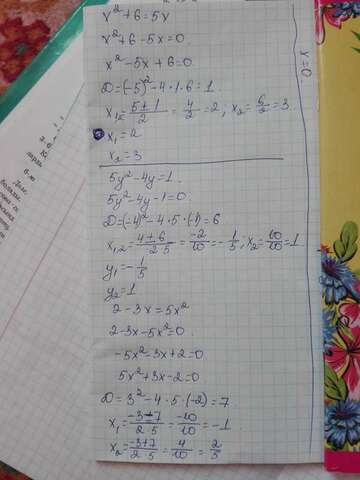 x² + 6 = 5x
x² + 6 - 5x = 0
x² - 5x + 6 = 0
D = (-5)² - 4·1·6 = 1
x₁,₂ = (5±1)/2 = 4/2 = 2, x₂ = 6/2 = 3
x₁ = 2
x₂ = 3
5y² - 4y = 1
5y² - 4y - 1 = 0
D = (-4)² - 4·5·(-1) = 6
x₁,₂ = (4±6)/(2·5) = -2/10 = -1/5; x₂ = 10/10 = 1
y₁ = -1/5
y₂ = 1
2 - 3x = 5x²
2 - 3x - 5x² = 0
-5x² - 3x + 2 = 0
5x² + 3x - 2 = 0
D = 3² - 4·5·(-2) = 7
x₁ = (-3-7)/(2·5) = -10/10 = -1
x₂ = (-3+7)/(2·5) = 4/10 = 2/5